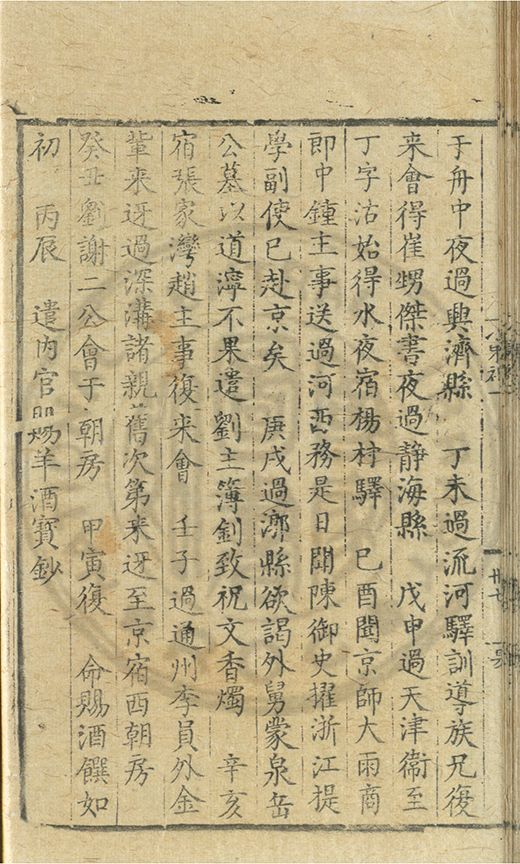 于舟中夜過興濟縣　丁未過流河驛訓導族兄復
来會得崔甥傑書夜過靜海縣　戊申過天津衞至
丁字沽始得水夜宿楊村驛　已酉聞京師大雨商
郎中鍾主事送過河西務是日聞陳御史擢浙江提
學副使已赴京矣　庚戌過漷縣欲謁外舅蒙泉岳
公墓以道濘不果遣劉主簿釗致祝文香燭　辛亥
宿張家灣趙主事復来會　壬子過通州李員外金
輩来迓過深溝諸親舊次第来迓至京宿西朝房
癸丑劉謝二公會于朝房　甲寅復　命賜酒饌如
初　丙辰　遣内官賜羊酒寳鈔
廿七